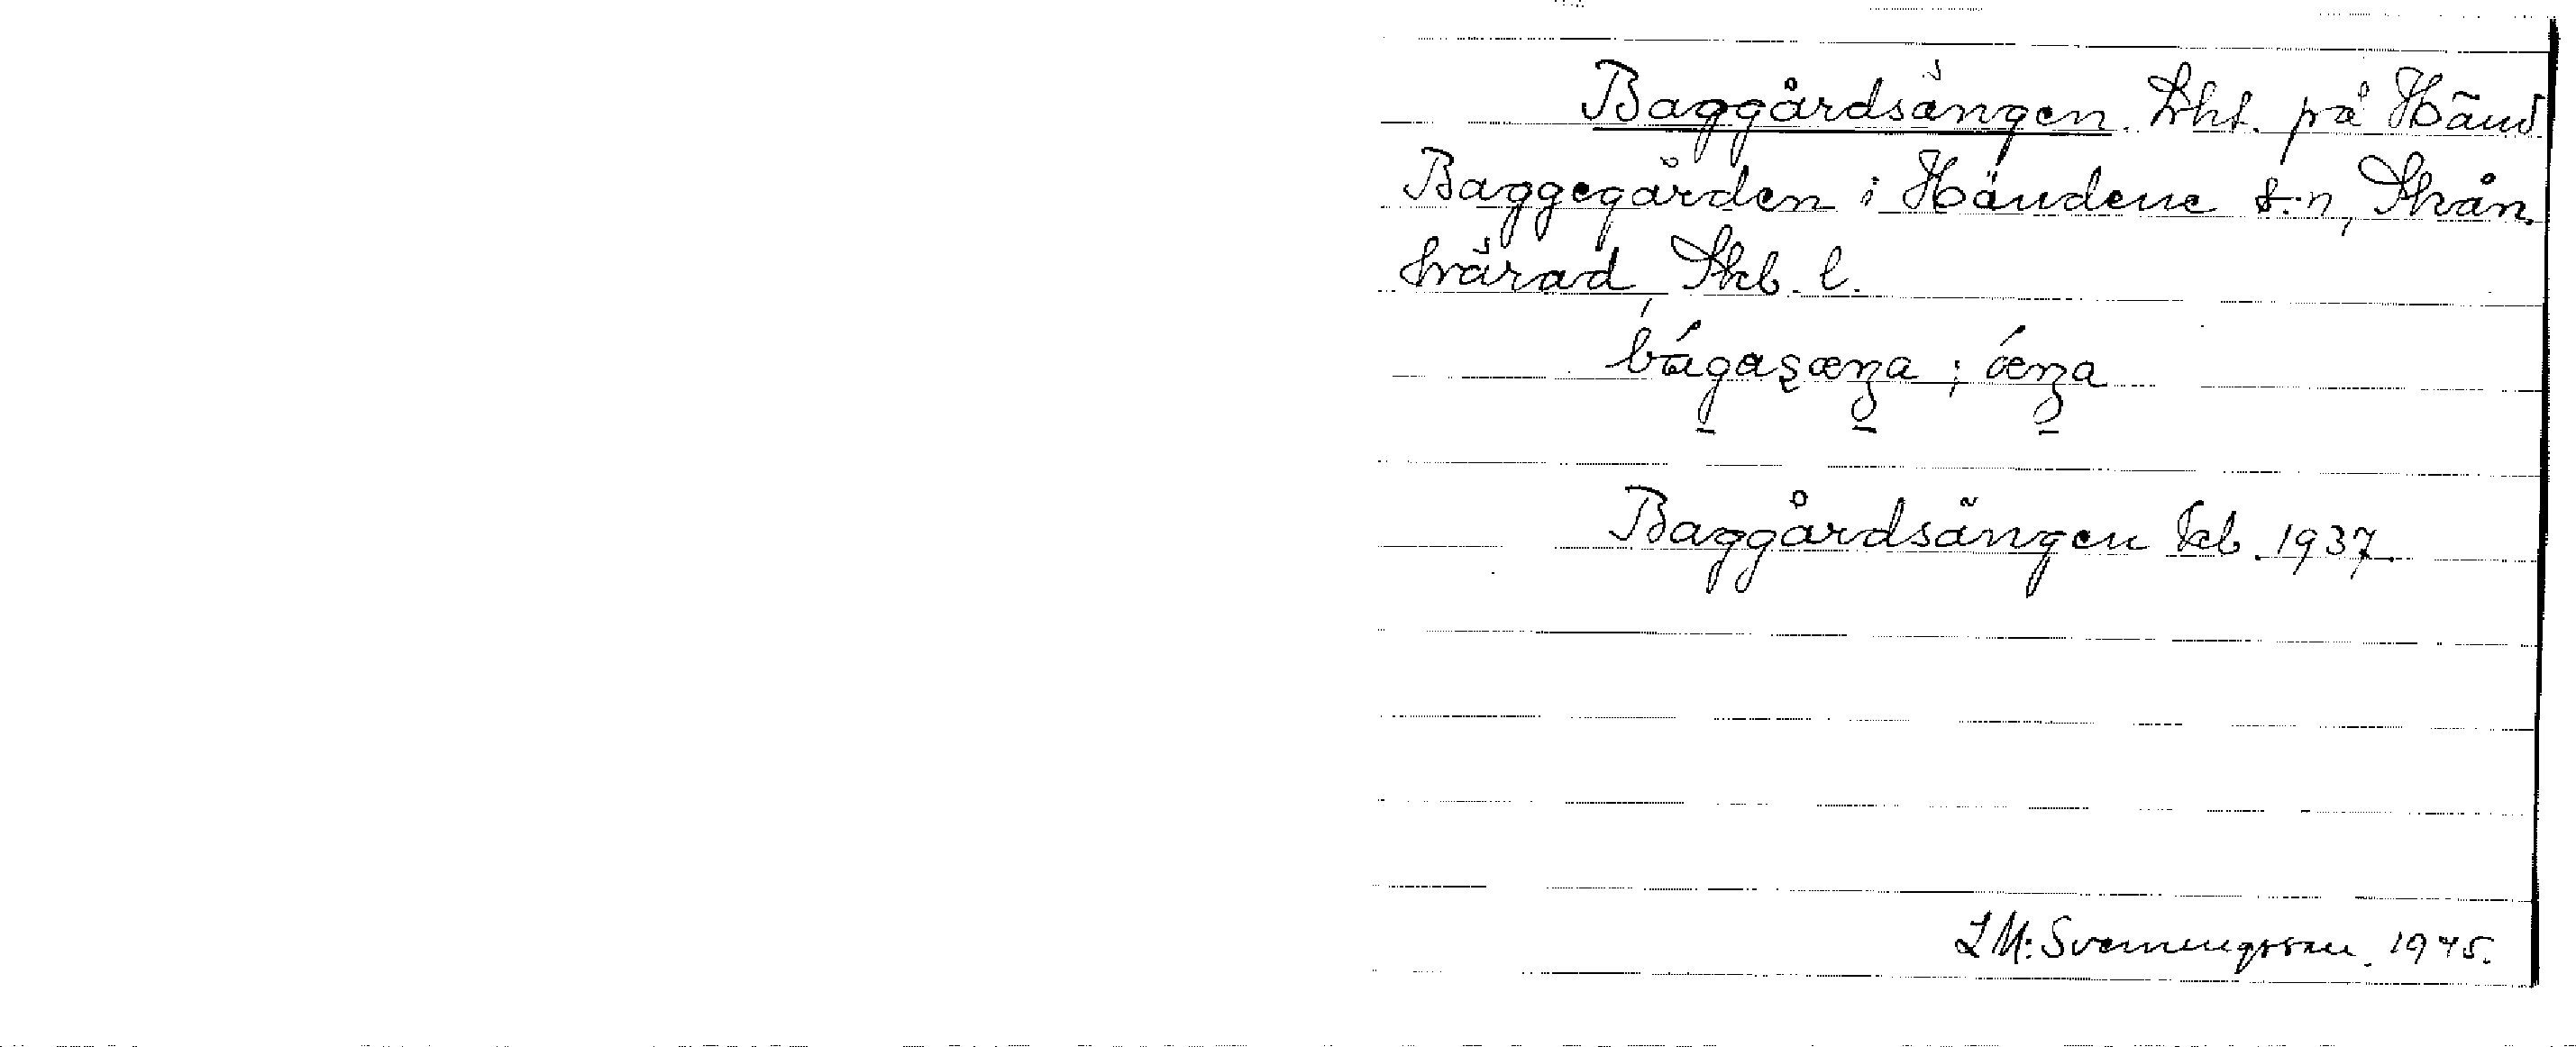 Baggårdsängen. Lht. på Händ
Baggegården i Händene s:n, Skån.
härad, Skb. l.
bágaʂæŋa ; ǽŋa
Baggårdsängen kb. 1937.
I M: Svenningsson. 1945.